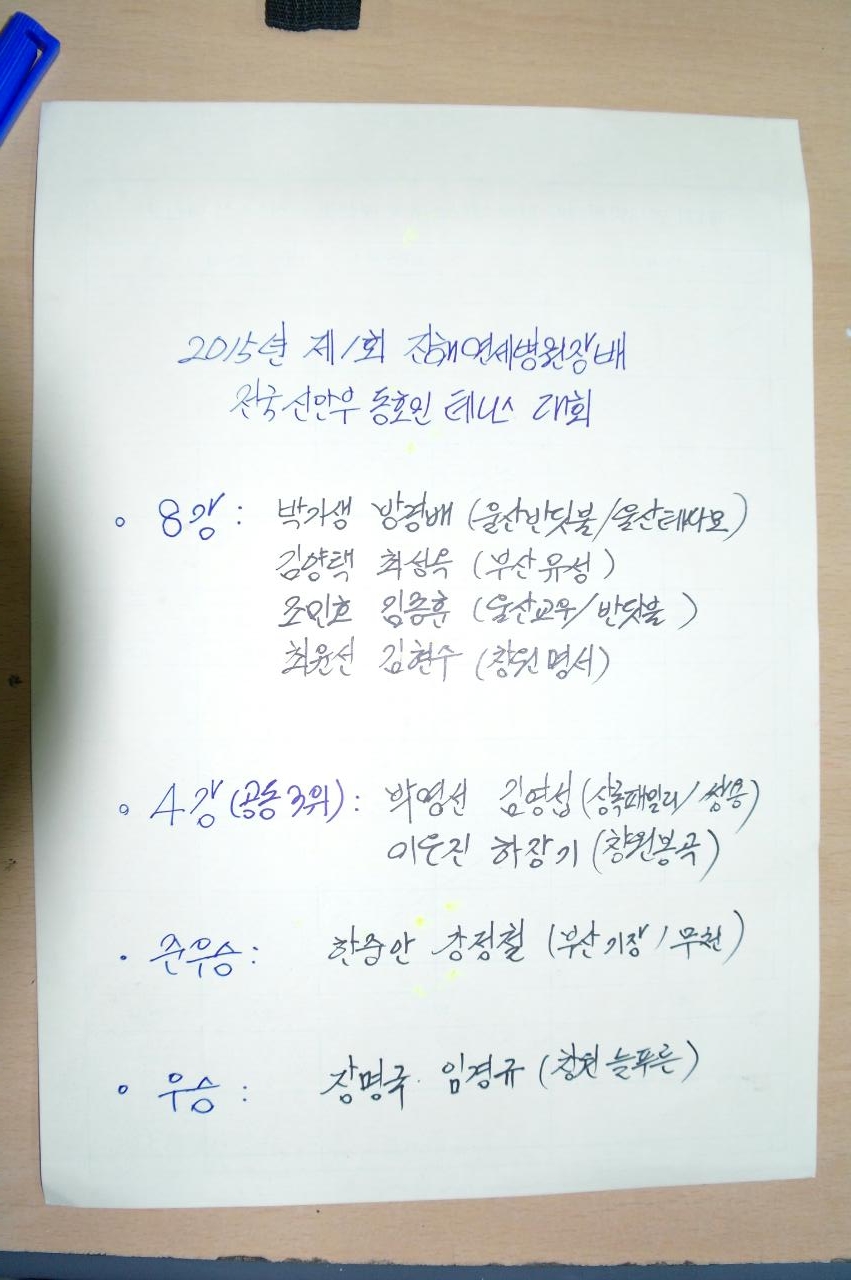 2015년 제1회 진해연세병원장배
전국신인부 동호인 테니스 대회
• 8강 : 박기생 방경배 (울산반딧불/울산테사모)
김양택 최성욱 (부산유성)
조민호 김종훈 (울산교우/반딧불)
최윤선 김현수 (창원명서)
• 4강(공동3위) : 박명선 김영섭(상록패밀리/쌍용)
이우진 하장기 (창원봉곡)
• 준우승 : 한중안 강정철 (부산기장/무천)
• 우승 : 장명국 임경규 (창원늘푸른)